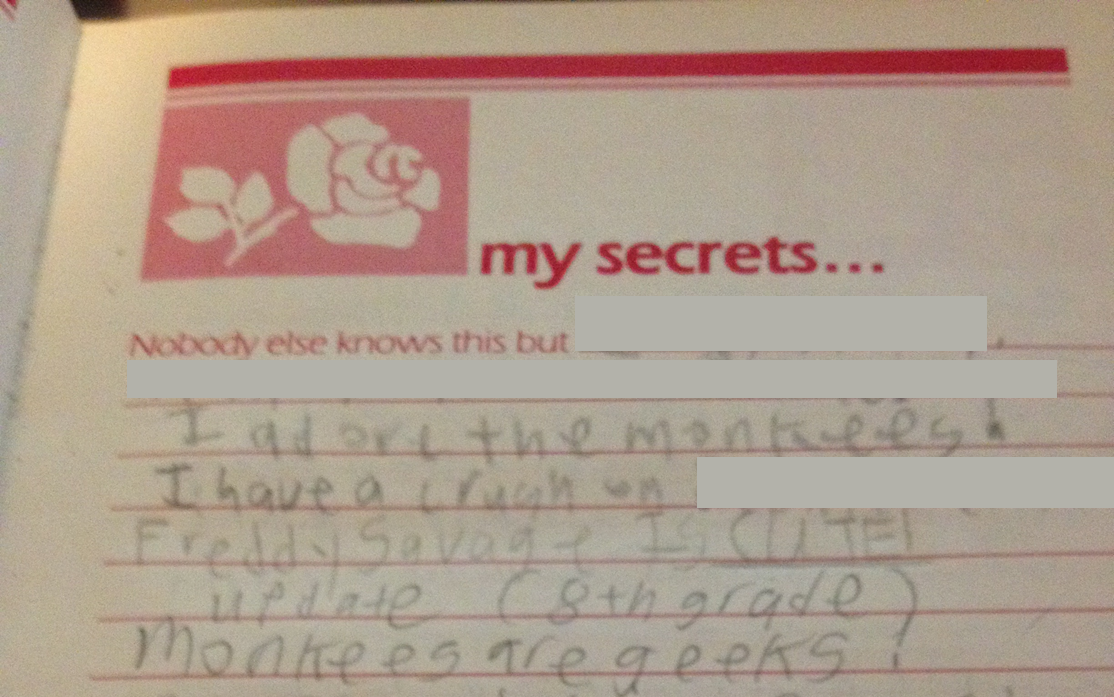 my secrets...
Nobody else knows this but
I adore the monkees!
I have a crush on
Freddy Savage Is CUTE!
update (8th grade)
Monkees are geeks!